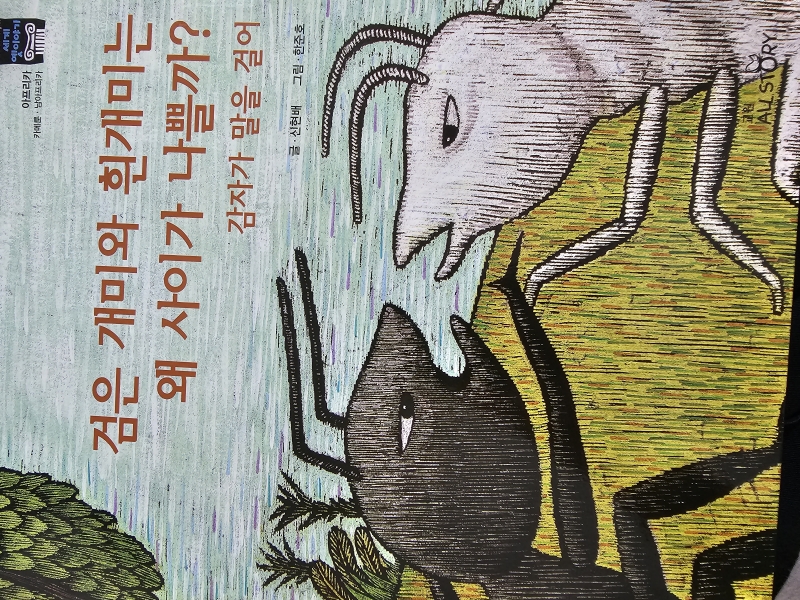 세계
옛이야기
아프리카
카메룬 · 남아프리카
검은 개미와 흰개미는
왜 사이가 나쁠까?
감자가 말을 걸어
글 · 신현배 그림 · 한준호
교원
ALL STORY